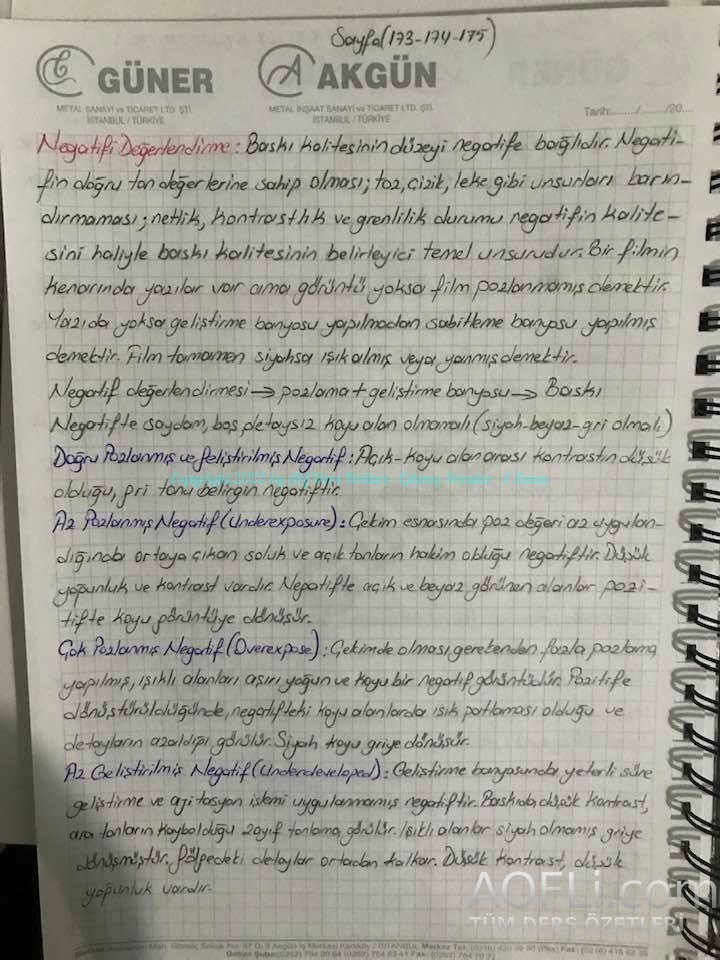 Sayfa(173-174-175)
GÜNER
AKGÜN
METAL SANAYİ ve TİCARET LTD. ŞTİ.
İSTANBUL / TÜRKİYE
METAL İNŞAAT SANAYİ ve TİCARET LTD. ŞTİ.
İSTANBUL / TÜRKİYE
Tarih:......./......./20....
Negatifi Değerlendirme: Baskı kalitesinin düzeyi negatife bağlıdır. Negati-
fin doğru ton değerlerine sahip olması; toz, çizik, leke gibi unsurları barın-
dırmaması; netlik, kontrastlık ve grenlilik durumu negatifin kalite-
sini haliyle baskı kalitesinin belirleyici temel unsurudur. Bir filmin
kenarında yazılar var ama görüntü yoksa film pozlanmamış demektir.
Yazıda yoksa geliştirme banyosu yapılmadan sabitleme banyosu yapılmış
demektir. Film tamamen siyahsa ışık almış veya yanmış demektir.
Negatif değerlendirmesi → pozlama + geliştirme banyosu → Baskı
Negatifte saydam, boş, detaysız koyu alan olmamalı (siyah-beyaz-gri olmalı)
Doğru Pozlanmış ve Geliştirilmiş Negatif: Açık-koyu alan arası kontrastın düşük
olduğu, gri tonu belirgin negatiftir.
Az Pozlanmış Negatif (Underexposure): Çekim esnasında poz değeri az uygulan-
dığında ortaya çıkan soluk ve açık tonların hakim olduğu negatiftir. Düşük
yoğunluk ve kontrast vardır. Negatifte açık ve beyaz görünen alanlar pozi-
tifte koyu görüntüye dönüşür.
Çok Pozlanmış Negatif (Overexpose): Çekimde olması gerekenden fazla pozlama
yapılmış, ışıklı alanları aşırı yoğun ve koyu bir negatif görüntüdür. Pozitife
dönüştürüldüğünde, negatifteki koyu alanlarda ışık patlaması olduğu ve
detayların azaldığı görülür. Siyah koyu griye dönüşür.
Az Geliştirilmiş Negatif (Underdeveloped): Geliştirme banyosunda yeterli süre
geliştirme ve ajitasyon işlemi uygulanmamış negatiftir. Baskıda düşük kontrast,
ara tonların kaybolduğu zayıf tonlama görülür. Işıklı alanlar siyah olmamış griye
dönüşmüştür. Gölgedeki detaylar ortadan kalkar. Düşük kontrast, düşük
yoğunluk vardır.
AOFLi.com
TÜM DERS ÖZETLERİ